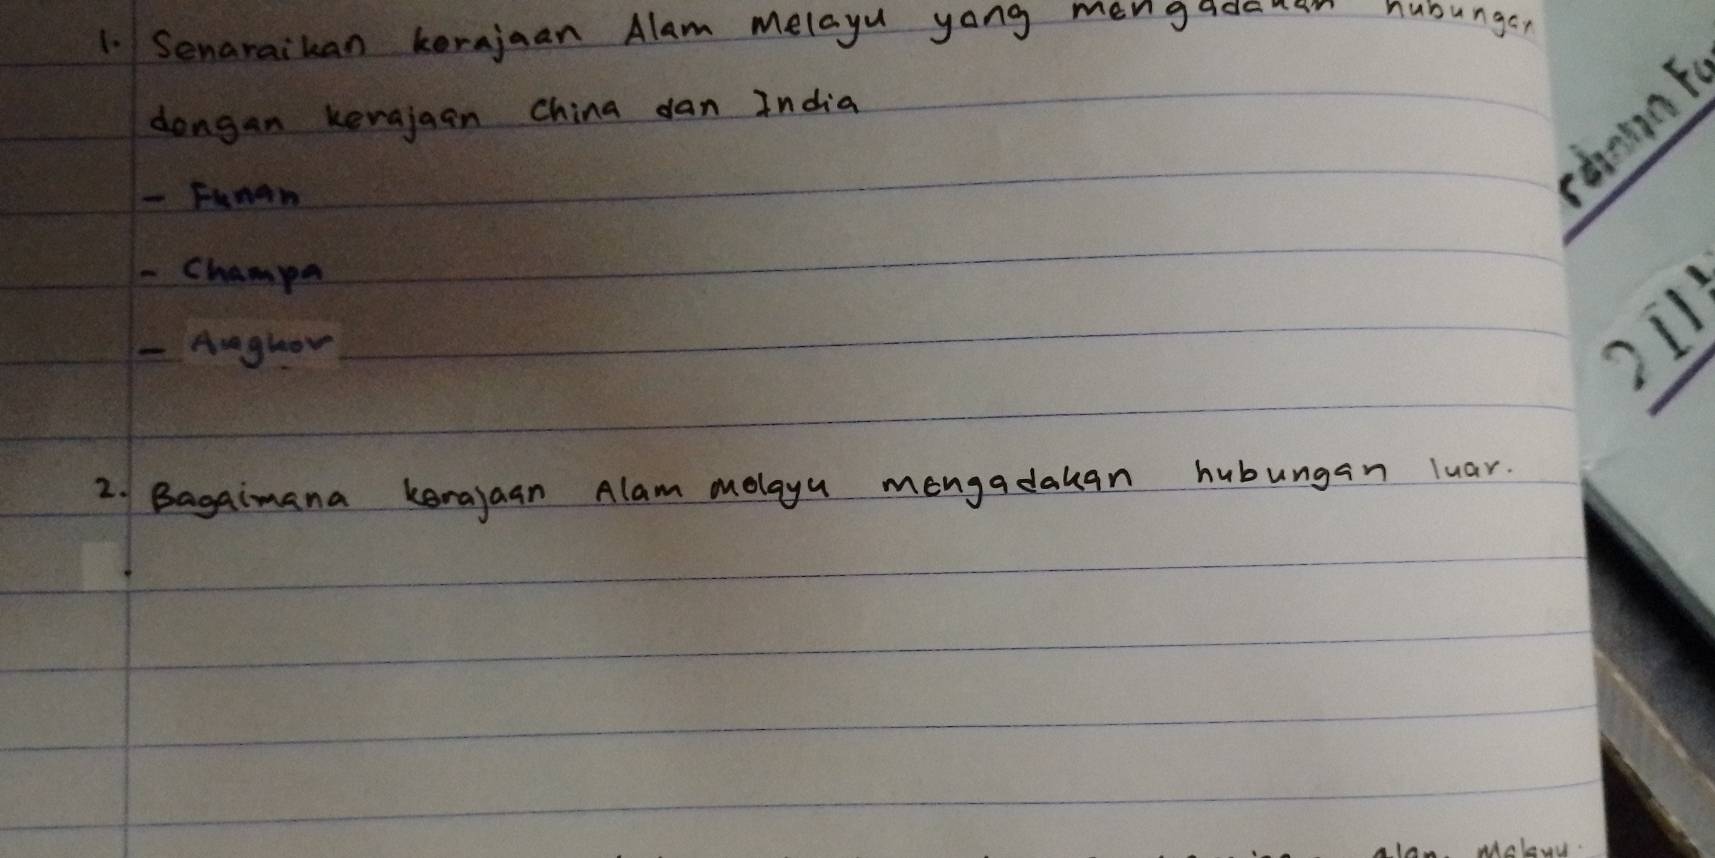 1. Senaraikan kerajaan Alam Melayu yang mengadakan hubungan
dengan kerajaan China dan India
- Funan
- Champa
- Angkor
2. Bagaimana kerajaan Alam Melayu mengadakan hubungan luar.
alam Melayu